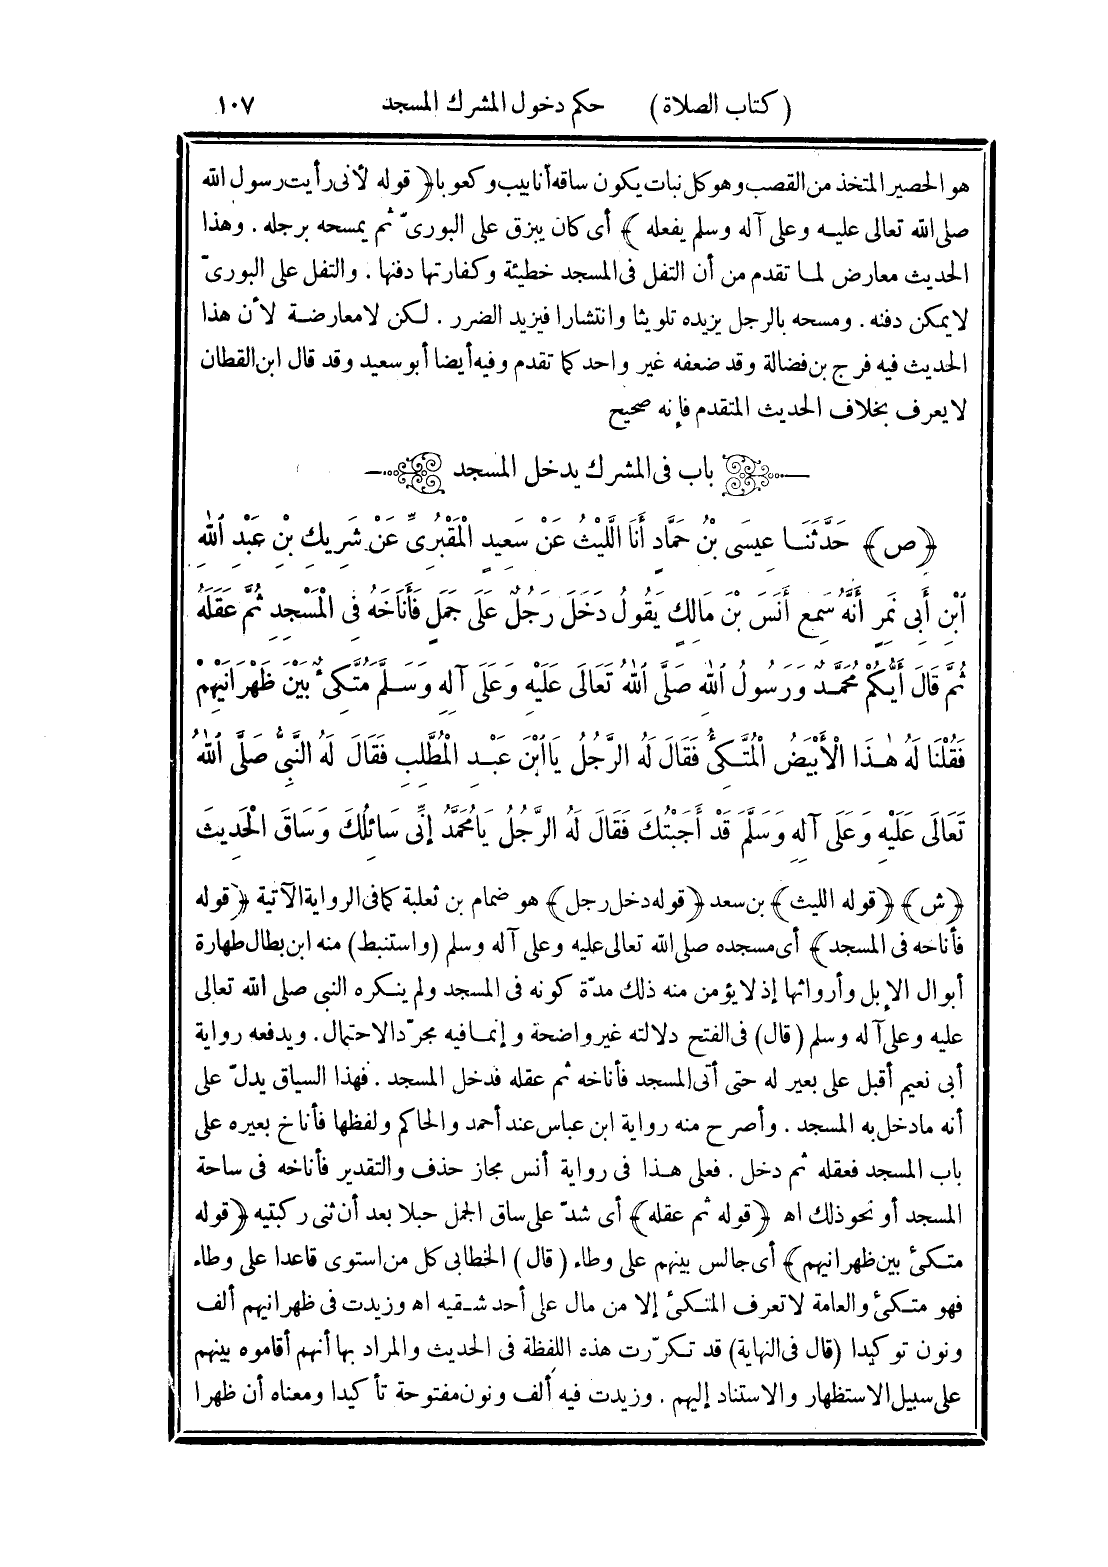 ( كتاب الصلاة ) حكم دخول المشرك المسجد ١٠٧
هو الحصير المتخذ من القصب وهو كل نبات يكون ساقه أنابيب وكعوبا ﴿ قوله لأنى رأيت رسول الله
صلى الله تعالى عليه وعلى آله وسلم يفعله ﴾ أى كان يبزق على البورىّ ثم يمسحه برجله . وهذا
الحديث معارض لما تقدم من أن التفل فى المسجد خطيئة وكفارتها دفنها . والتفل على البورىّ
لايمكن دفنه . ومسحه بالرجل يزيده تلويثا وانتشارا فيزيد الضرر . لكن لامعارضة لأن هذا
الحديث فيه فرج بن فضالة وقد ضعفه غير واحد كما تقدم وفيه أيضا أبو سعيد وقد قال ابن القطان
لايعرف بخلاف الحديث المتقدم فإنه صحيح
باب فى المشرك يدخل المسجد
﴿ ص ﴾ حَدَّثَنَا عِيسَى بْنُ حَمَّادٍ أَنَا اللَّيْثُ عَنْ سَعِيدٍ الْمَقْبُرِىِّ عَنْ شَرِيكِ بْنِ عَبْدِ اللهِ
ابْنِ أَبِى نَمِرٍ أَنَّهُ سَمِعَ أَنَسَ بْنَ مَالِكٍ يَقُولُ دَخَلَ رَجُلٌ عَلَى جَمَلٍ فَأَنَاخَهُ فِى الْمَسْجِدِ ثُمَّ عَقَلَهُ
ثُمَّ قَالَ أَيُّكُمْ مُحَمَّدٌ وَرَسُولُ اللهِ صَلَّى اللهُ تَعَالَى عَلَيْهِ وَعَلَى آلِهِ وَسَلَّمَ مُتَّكِئٌ بَيْنَ ظَهْرَانَيْهِمْ
فَقُلْنَا لَهُ هٰذَا الْأَبْيَضُ الْمُتَّكِئُ فَقَالَ لَهُ الرَّجُلُ يَا ابْنَ عَبْدِ الْمُطَّلِبِ فَقَالَ لَهُ النَّبِىُّ صَلَّى اللهُ
تَعَالَى عَلَيْهِ وَعَلَى آلِهِ وَسَلَّمَ قَدْ أَجَبْتُكَ فَقَالَ لَهُ الرَّجُلُ يَا مُحَمَّدُ إِنِّى سَائِلُكَ وَسَاقَ الْحَدِيثَ
﴿ ش ﴾ ﴿ قوله الليث ﴾ بن سعد ﴿ قوله دخل رجل ﴾ هو ضمام بن ثعلبة كما فى الرواية الآتية ﴿ قوله
فأناخه فى المسجد ﴾ أى مسجده صلى الله تعالى عليه وعلى آله وسلم ( واستنبط ) منه ابن بطال طهارة
أبوال الإبل وأرواثها إذ لايؤمن منه ذلك مدّة كونه فى المسجد ولم ينكره النبى صلى الله تعالى
عليه وعلى آله وسلم ( قال ) فى الفتح دلالته غير واضحة وإنما فيه مجرّد الاحتمال . ويدفعه رواية
أبى نعيم أقبل على بعير له حتى أتى المسجد فأناخه ثم عقله فدخل المسجد . فهذا السياق يدلّ على
أنه مادخل به المسجد . وأصرح منه رواية ابن عباس عند أحمد والحاكم ولفظها فأناخ بعيره على
باب المسجد فعقله ثم دخل . فعلى هذا فى رواية أنس مجاز حذف والتقدير فأناخه فى ساحة
المسجد أو نحو ذلك اه ﴿ قوله ثم عقله ﴾ أى شدّ على ساق الجمل حبلا بعد أن ثنى ركبتيه ﴿ قوله
متكئ بين ظهرانيهم ﴾ أى جالس بينهم على وطاء ( قال ) الخطابى كل من استوى قاعدا على وطاء
فهو متكئ والعامة لاتعرف المتكئ إلا من مال على أحد شقيه اه وزيدت فى ظهرانيهم ألف
ونون توكيدا ( قال فى النهاية ) قد تكرّرت هذه اللفظة فى الحديث والمراد بها أنهم أقاموه بينهم
على سبيل الاستظهار والاستناد إليهم . وزيدت فيه ألف ونون مفتوحة تأكيدا ومعناه أن ظهرا